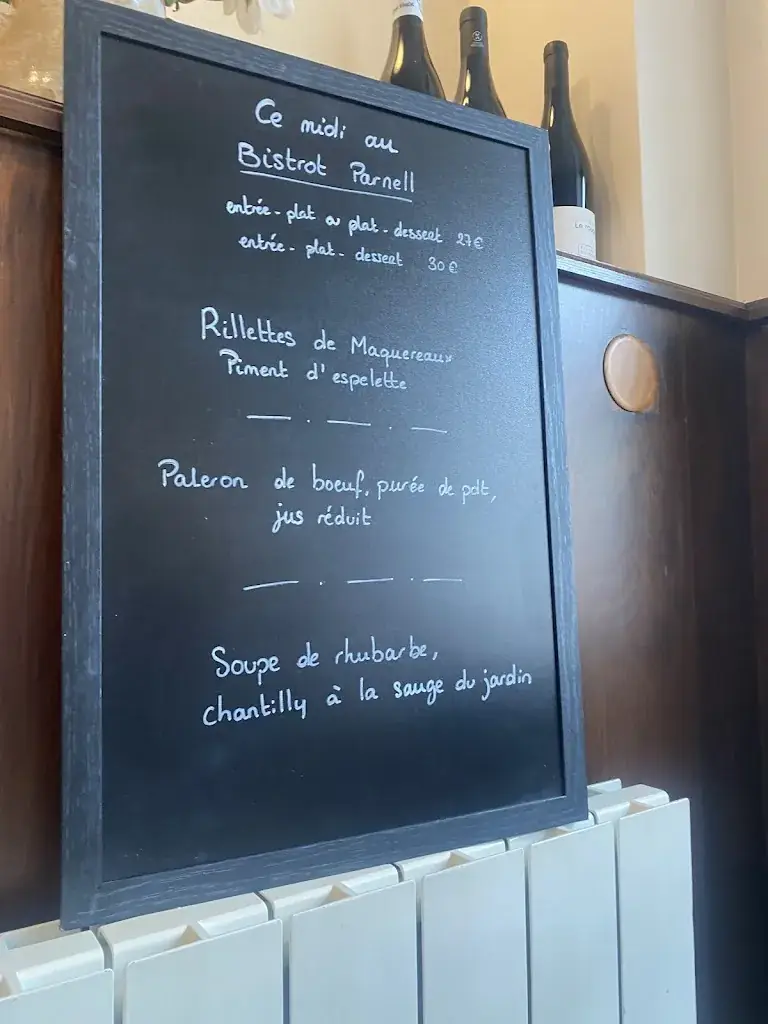 Ce midi au
Bistrot Parnell
entrée - plat ou plat - dessert 27€
entrée - plat - dessert 30€
Rillettes de Maquereaux
Piment d'espelette
Paleron de boeuf, purée de pdt,
jus réduit
Soupe de rhubarbe,
chantilly à la sauge du jardin